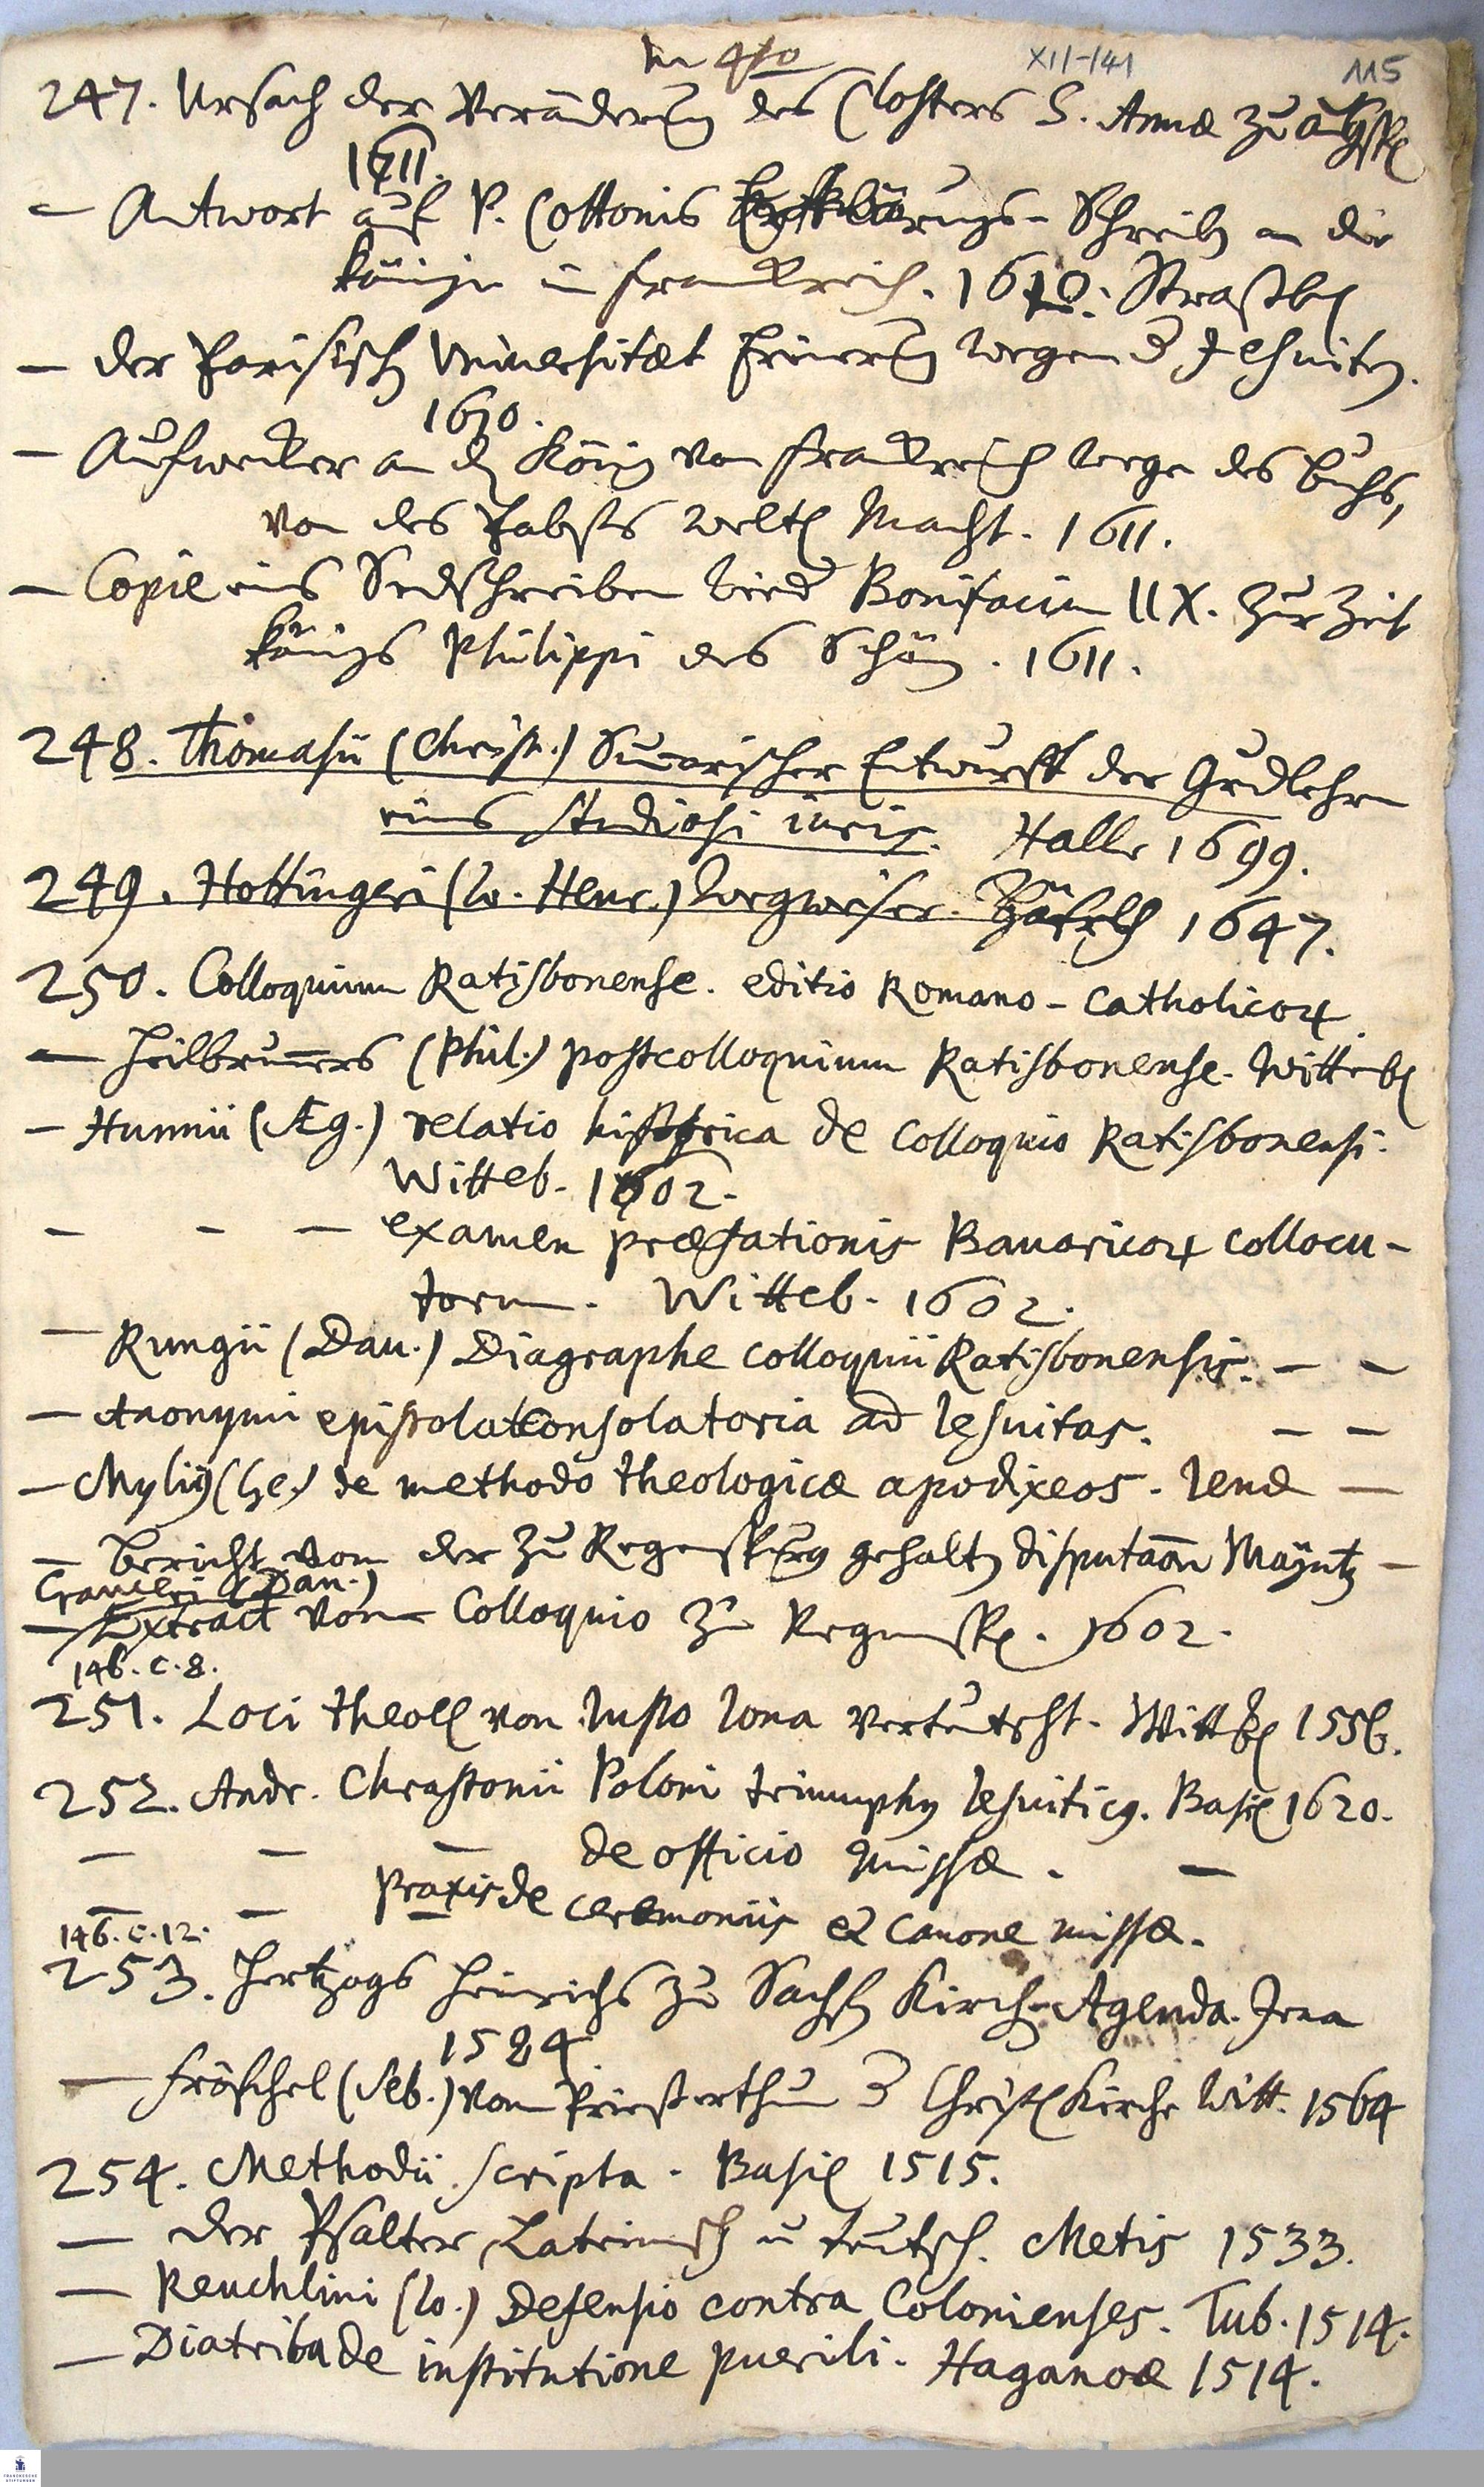 In 4to XII-141 115
247. Ursach der Veränderung des Closters S. Annæ zu Augsp
1611.
— Antwort auf P. Cottonis Erklärungs-Schreiben an die
Königin in Franckreich. 1610. Straßb
— der Parisisch Universitæt Erinerung wegen d Jesuiten.
1610.
— Aufwecker an den König von Franckreich wegen des Buchs,
von des Pabsts weltl Macht. 1611.
— Copie eines Sendschreiben wieder Bonifacium IIX. zur Zeit
Königs Philippi des Schön. 1611.
248. Thomasii (Christ.) Sumarischer Entwurff der Grundlehren
eines Studiosi iuris. Halle 1699.
249. Hottingeri (Io. Henr.) Wegweiser. Zürich 1647.
250. Colloquium Ratisbonense. editio Romano-Catholicor.
— Heilbrunners (Phil.) postcolloquium Ratisbonense. Witteb
— Hunnii (Æg.) relatio historica de Colloquio Ratisbonensi.
Witteb. 1602.
— — — examen præfationis Bauaricor collocu-
torum. Witteb. 1602.
— Rungii (Dau.) Diagraphe colloquii Ratisbonensis. — —
— Anonymi epistola Consolatoria ad Iesuitas. — —
— Mylius (Ge.) de methodo theologicæ apodixeos. Ienæ —
— Bericht von der zu Regenspurg gehalten disputaon Mayntz —
Crameri (Dan.)
— Extract vom Colloquio zu Regensp. 1602.
146. C. 8.
251. Loci theoll von Iusto Iona verteutscht. Wittb 1556.
252. Andr. Chrastonii Poloni triumphus Iesuiticus. Basil 1620.
— — — de officio missæ. —
— — praxis de ceremoniis et canone missæ.
146. C. 12.
253. Hertzogs Heinrichs zu Sachsen Kirchen-Agenda. Jena
1584
— Fröschel (Seb.) vom Priesterthum d Christl Kirche Witt. 1564
254. Methodii scripta. Basil 1515.
— der Psalter Lateinisch u teutsch. Metis 1533.
— Reuchlini (Io.) Defensio contra Colonienses. Tub. 1514.
— Diatriba de institutione puerili. Haganoæ 1514.
FRANCKESCHE
STIFTUNGEN